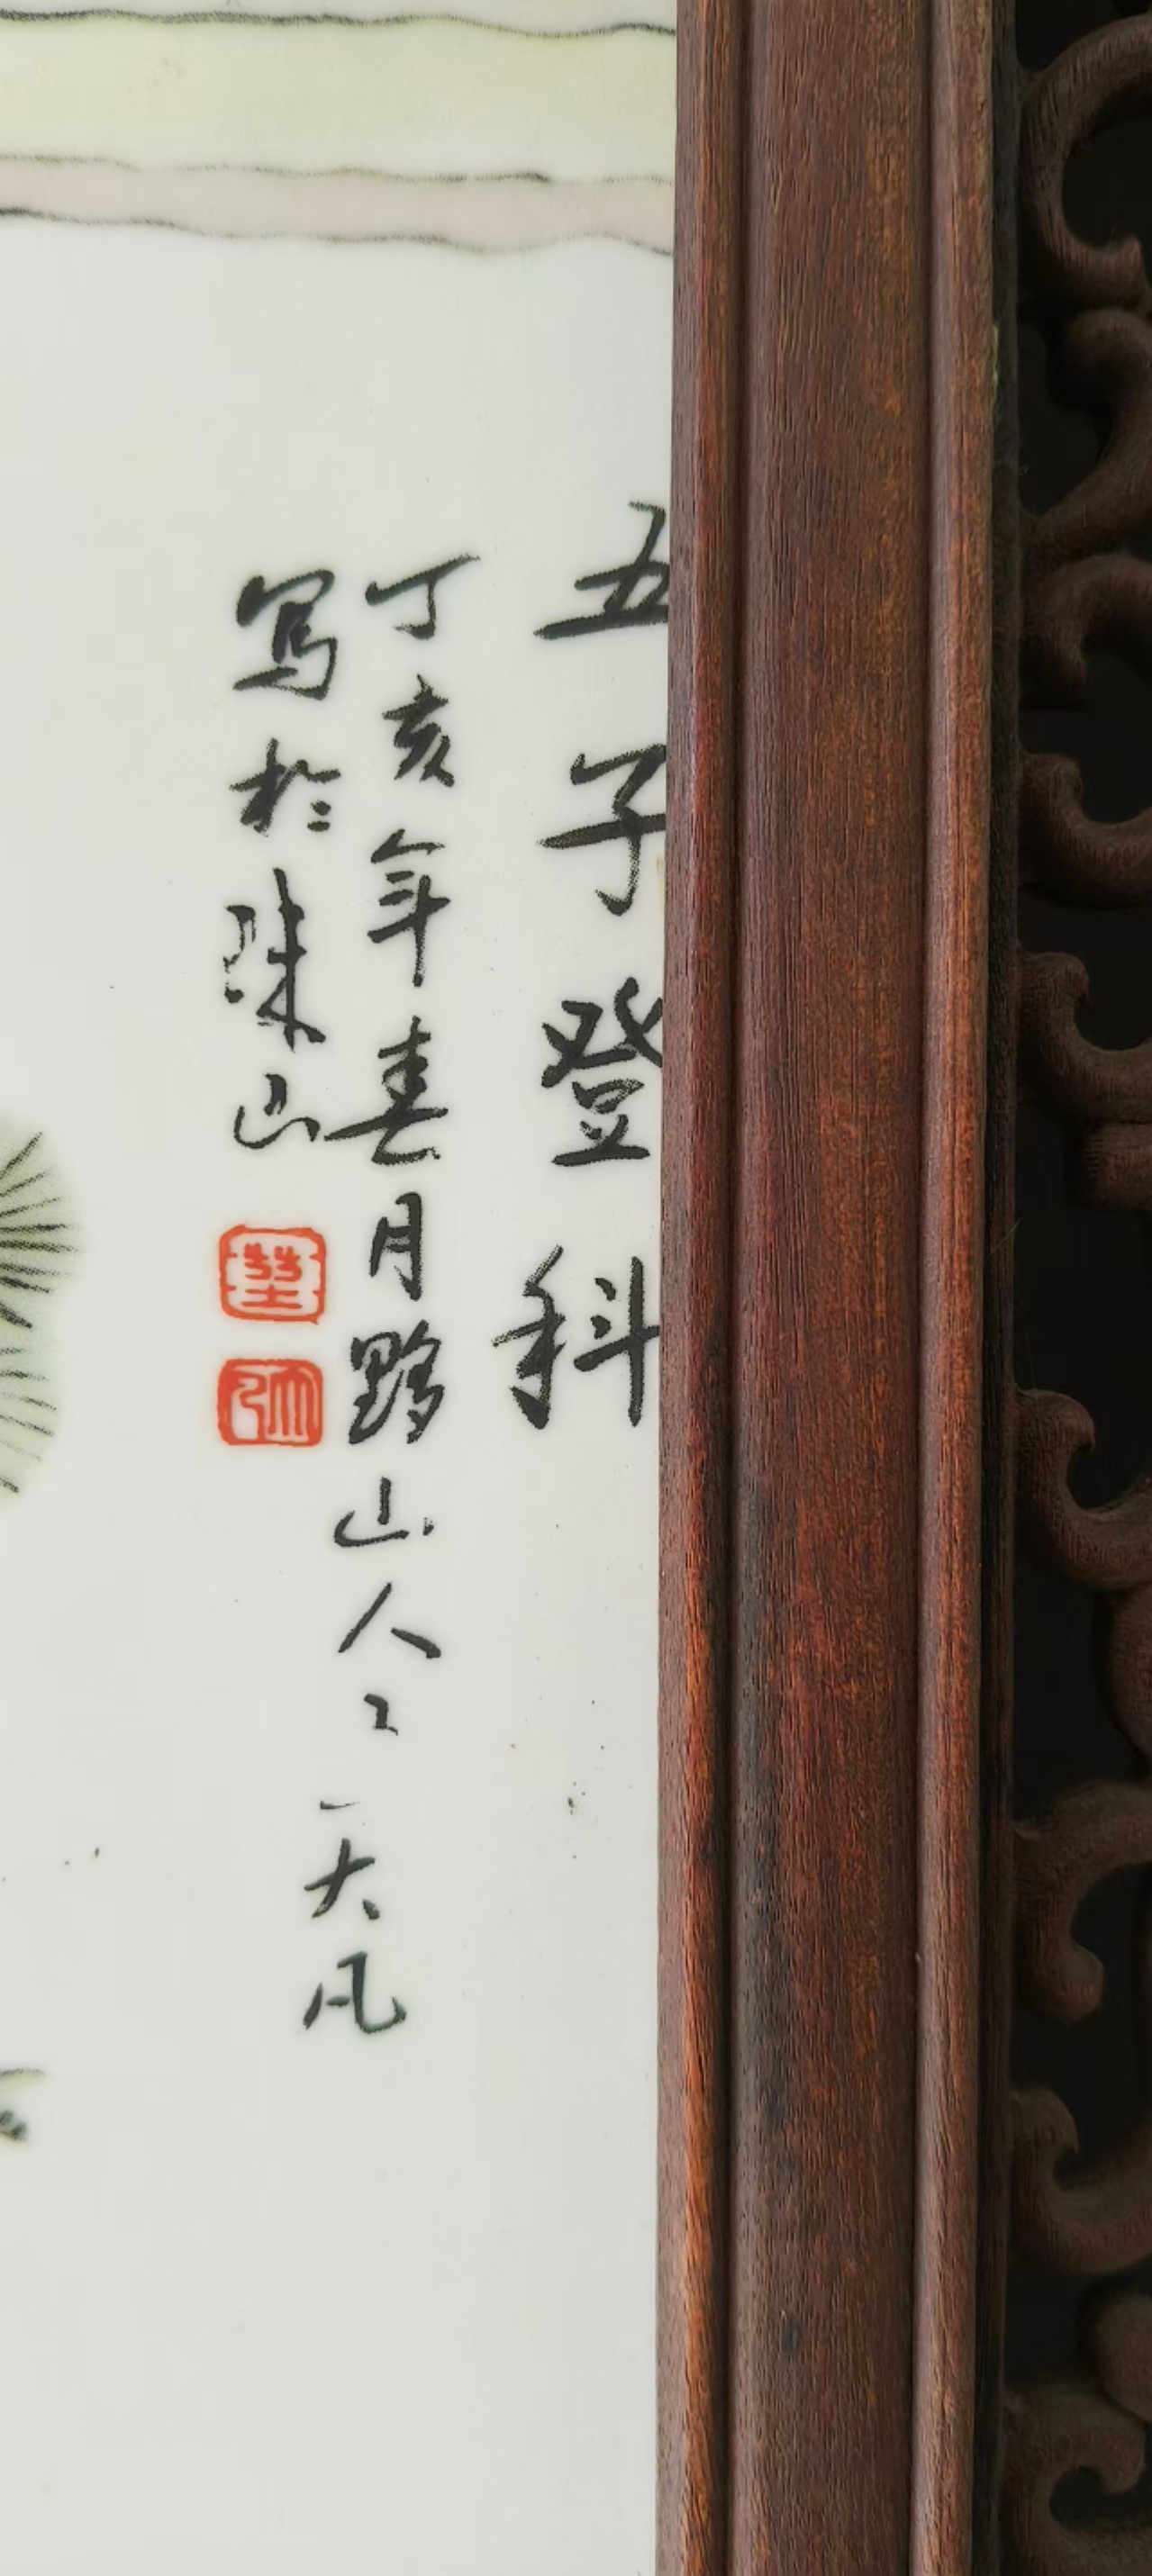 五子登科
丁亥年春月黟山人
天凡
写於珠山